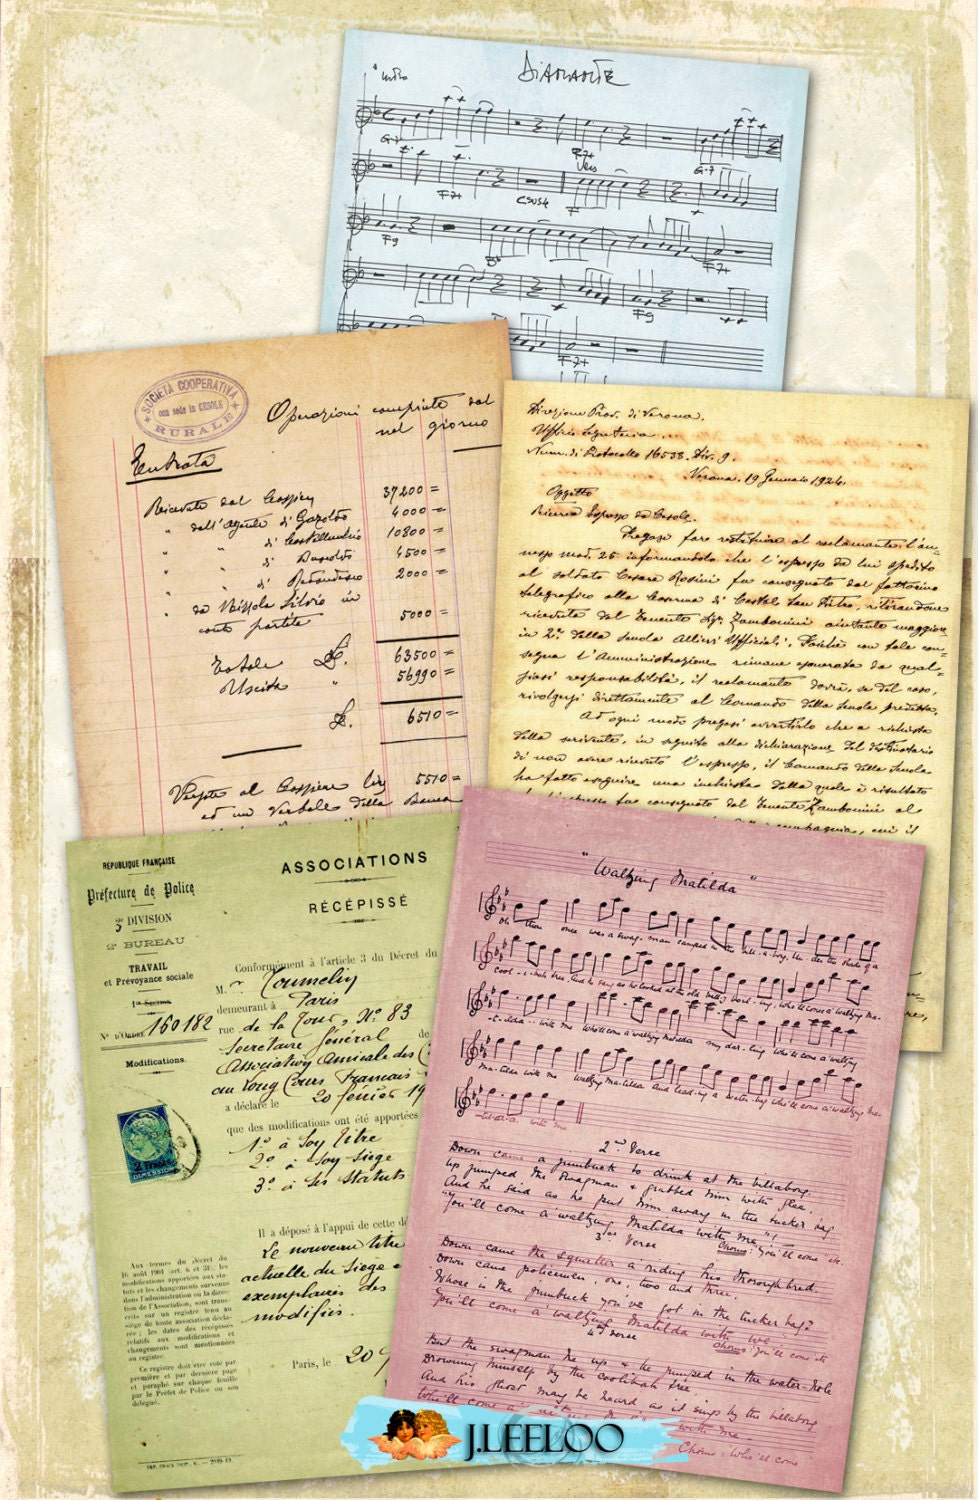 Diamante
" Intro
G-7
F7+
Vers
G-7
F7+
Csus4
F
F9
Bb
F7+
F9
F7+
SOCIETÀ COOPERATIVA
con sede in CESOLE
RURALE
Operazioni compiute dal
nel giorno
Entrata
Ricevute dal Cassiere 37200 =
" dall'Agente di Gazoldo 4000 =
" " di Castellucchio 10800 =
" " di 4500 =
" " di Redondesco 2000 =
" da Silvio in
conto partite 5000 =
Totale £. 63500 =
Uscita " 56990 =
£. 6510 =
Versate al Cassiere 5510 =
ed un Verbale della Banca
Direzione Prov. di Verona.
Ufficio Segreteria
Num. di Protocollo 16538. Div. 9.
Verona, 19 Gennaio 1924.
Oggetto
Ricerca Espresso da Cesole.
Pregasi fare restituire al reclamante l'an-
nesso mod. 25 informandolo che l'espresso da lui spedito
al soldato Cesare Rosini fu consegnato dal fattorino
telegrafico alla Caserma di Castel San Pietro, ritirandone
ricevuta dal Tenente Sigr. Zambonini aiutante maggiore
in 2ª della Scuola Allievi Ufficiali. Poichè con tale con-
segna l'Amministrazione rimane esonerata da qual-
siasi responsabilità, il reclamante dovrà, se del caso,
rivolgersi direttamente al Comando della Scuola predetta.
Ad ogni modo pregasi avvertirlo che a richiesta
della scrivente, in seguito alla dichiarazione del destinatario
di non avere ricevuto l'espresso, il Comando della Scuola
ha fatto eseguire una inchiesta dalla quale è risultato
fu consegnato dal Tenente Zambonini al
compagnia, cui il
RÉPUBLIQUE FRANÇAISE
Préfecture de Police
3e DIVISION
2e BUREAU
TRAVAIL
et Prévoyance sociale
1re Section
N° d'Ordre 160182
Modifications.
2 Francs
DIMENSION
Aux termes du décret du
16 août 1901 (art. 6 et 31), les
modifications apportées aux sta-
tuts et les changements survenus
dans l'administration ou la direc-
tion de l'Association, sont trans-
crits sur un registre tenu au
siège de toute association décla-
rée; les dates des récépissés
relatifs aux modifications et
changements sont mentionnées
au registre.
Ce registre doit être coté par
première et par dernière page
et paraphé sur chaque feuille
par le Préfet de Police ou son
délégué.
ASSOCIATIONS
RÉCÉPISSÉ
Conformément à l'article 3 du Décret du
M. r Toumelin
demeurant à Paris
rue de la Tour, N° 83
Secrétaire Général de
Association Amicale des C
au Long Cours Français
a déclaré le 20 février 19
que des modifications ont été apportées
1° à son titre
2° à son siège
3° à ses statuts
Il a déposé à l'appui de cette d
Le nouveau titre
actuelle du siège e
exemplaires des
modifiés.
Paris, le 20
" Waltzing Matilda "
Oh there once was a swag-man camped in the bill-a-bong, Un-der the shade of a
Cool-i-bah tree, And he sang as he looked at the old billy boil-ing, Who'll come a waltzing Ma-
-tilda with me Who'll come a waltzing Matilda my dar-ling Who'll come a waltzing
Ma-tilda with me Waltzing Matilda And lead-ing a water-bag Who'll come a waltzing Ma-
-tilda with me
2nd Verse
Down came a jumbuck to drink at the billabong
Up jumped the swagman & grabbed him with glee.
And he said as he put him away in the tucker bag
"You'll come a waltzing Matilda with me"!
Chorus: You'll come etc
3rd Verse
Down came the squatter a riding his thoroughbred
Down came policemen, one, two and three.
Whose is the jumbuck you've got in the tucker bag?
You'll come a waltzing Matilda with me
Chorus: You'll come etc
4th Verse
But the swagman he up & he jumped in the water-hole
Drowning himself by the coolibah tree.
And his ghost may be heard as it sings by the billabong
Who'll come a
with me
Chorus: Who'll come
J.LEELOO